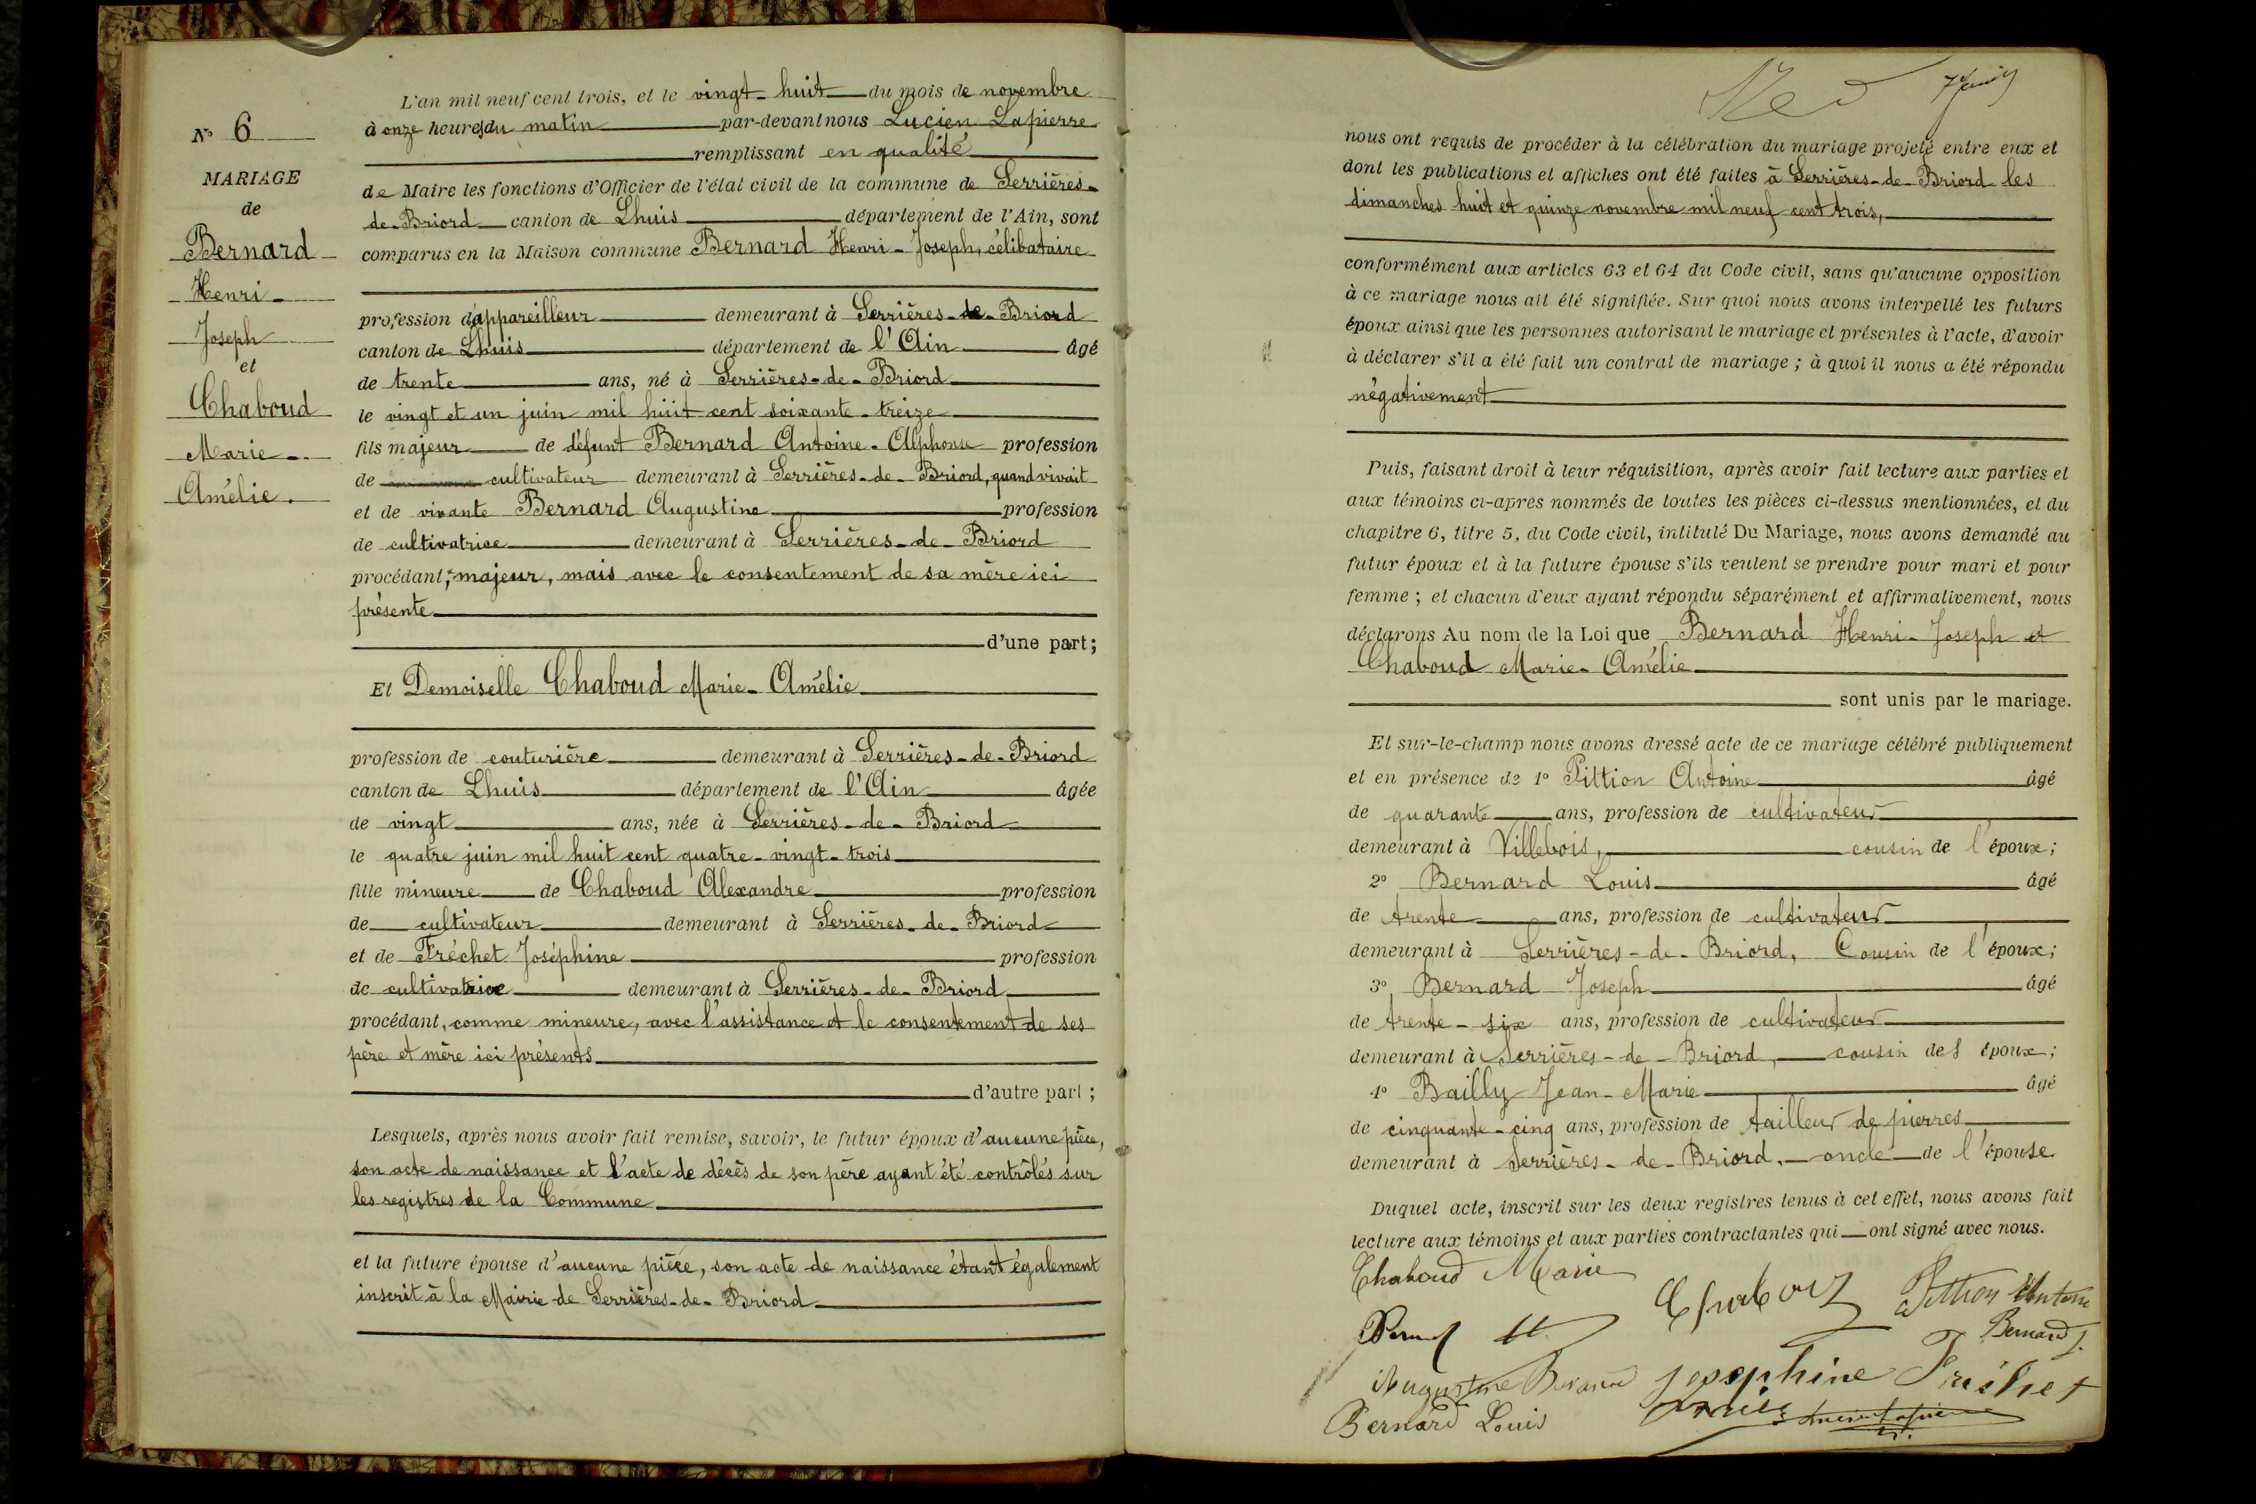 N° 6
MARIAGE
de
Bernard
Henri-
Joseph
et
Chaboud
Marie-
Amélie.
L'an mil neuf cent trois, et le vingt-huit du mois de novembre
à onze heures du matin par-devant nous Lucien Lapierre
remplissant en qualité
de Maire les fonctions d'Officier de l'état civil de la commune de Serrières-
de-Briord canton de Lhuis département de l'Ain, sont
comparus en la Maison commune Bernard Henri-Joseph, célibataire
profession d'appareilleur demeurant à Serrières-de-Briord
canton de Lhuis département de l'Ain âgé
de trente ans, né à Serrières-de-Briord
le vingt et un juin mil huit cent soixante-treize
fils majeur de défunt Bernard Antoine-Alphonse profession
de cultivateur demeurant à Serrières-de-Briord, quand vivait
et de vivante Bernard Augustine profession
de cultivatrice demeurant à Serrières-de-Briord
procédant, majeur, mais avec le consentement de sa mère ici
présente
d'une part;
Et Demoiselle Chaboud Marie-Amélie
profession de couturière demeurant à Serrières-de-Briord
canton de Lhuis département de l'Ain âgée
de vingt ans, née à Serrières-de-Briord
le quatre juin mil huit cent quatre-vingt-trois
fille mineure de Chaboud Alexandre profession
de cultivateur demeurant à Serrières-de-Briord
et de Fréchet Joséphine profession
de cultivatrice demeurant à Serrières-de-Briord
procédant, comme mineure, avec l'assistance et le consentement de ses
père et mère ici présents
d'autre part;
Lesquels, après nous avoir fait remise, savoir, le futur époux d'aucune pièce,
son acte de naissance et l'acte de décès de son père ayant été contrôlés sur
les registres de la Commune
et la future épouse d'aucune pièce, son acte de naissance étant également
inscrit à la Mairie de Serrières-de-Briord
nous ont requis de procéder à la célébration du mariage projeté entre eux et
dont les publications et affiches ont été faites à Serrières-de-Briord les
dimanches huit et quinze novembre mil neuf cent trois,
conformément aux articles 63 et 64 du Code civil, sans qu'aucune opposition
à ce mariage nous ait été signifiée. Sur quoi nous avons interpellé les futurs
époux ainsi que les personnes autorisant le mariage et présentes à l'acte, d'avoir
à déclarer s'il a été fait un contrat de mariage; à quoi il nous a été répondu
négativement
Puis, faisant droit à leur réquisition, après avoir fait lecture aux parties et
aux témoins ci-après nommés de toutes les pièces ci-dessus mentionnées, et du
chapitre 6, titre 5, du Code civil, intitulé Du Mariage, nous avons demandé au
futur époux et à la future épouse s'ils veulent se prendre pour mari et pour
femme; et chacun d'eux ayant répondu séparément et affirmativement, nous
déclarons Au nom de la Loi que Bernard Henri-Joseph et
Chaboud Marie-Amélie
sont unis par le mariage.
Et sur-le-champ nous avons dressé acte de ce mariage célébré publiquement
et en présence de 1° Pittion Antoine âgé
de quarante ans, profession de cultivateur
demeurant à Villebois, cousin de l'époux;
2° Bernard Louis âgé
de trente ans, profession de cultivateur
demeurant à Serrières-de-Briord, Cousin de l'époux;
3° Bernard Joseph âgé
de trente-six ans, profession de cultivateur
demeurant à Serrières-de-Briord, cousin de l'époux;
4° Bailly Jean-Marie âgé
de cinquante-cinq ans, profession de tailleur de pierres
demeurant à Serrières-de-Briord, oncle de l'épouse
Duquel acte, inscrit sur les deux registres tenus à cet effet, nous avons fait
lecture aux témoins et aux parties contractantes qui ont signé avec nous.
Chaboud Marie
Chaboud Pittion Antoine
Bernard H. Bernard J.
Augustine Bernard Joséphine Fréchet
Bernard Louis